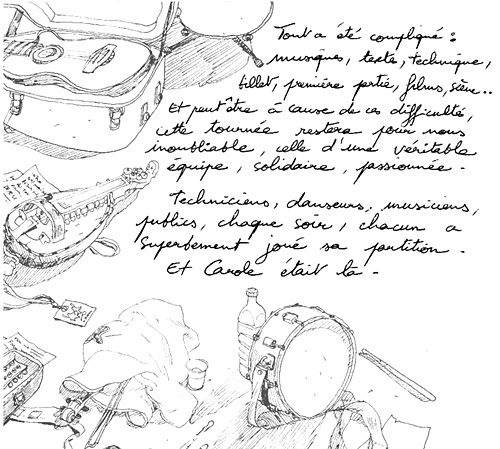 Tout a été compliqué :
musiques, texte, technique,
billet, première partie, films, scène..
Et peut être à cause de ces difficultés,
cette tournée restera pour nous
inoubliable, celle d'une véritable
équipe, solidaire, passionnée.
Techniciens, danseurs, musiciens,
publics, chaque soir, chacun a
superbement joué sa partition.
Et Carole était là.